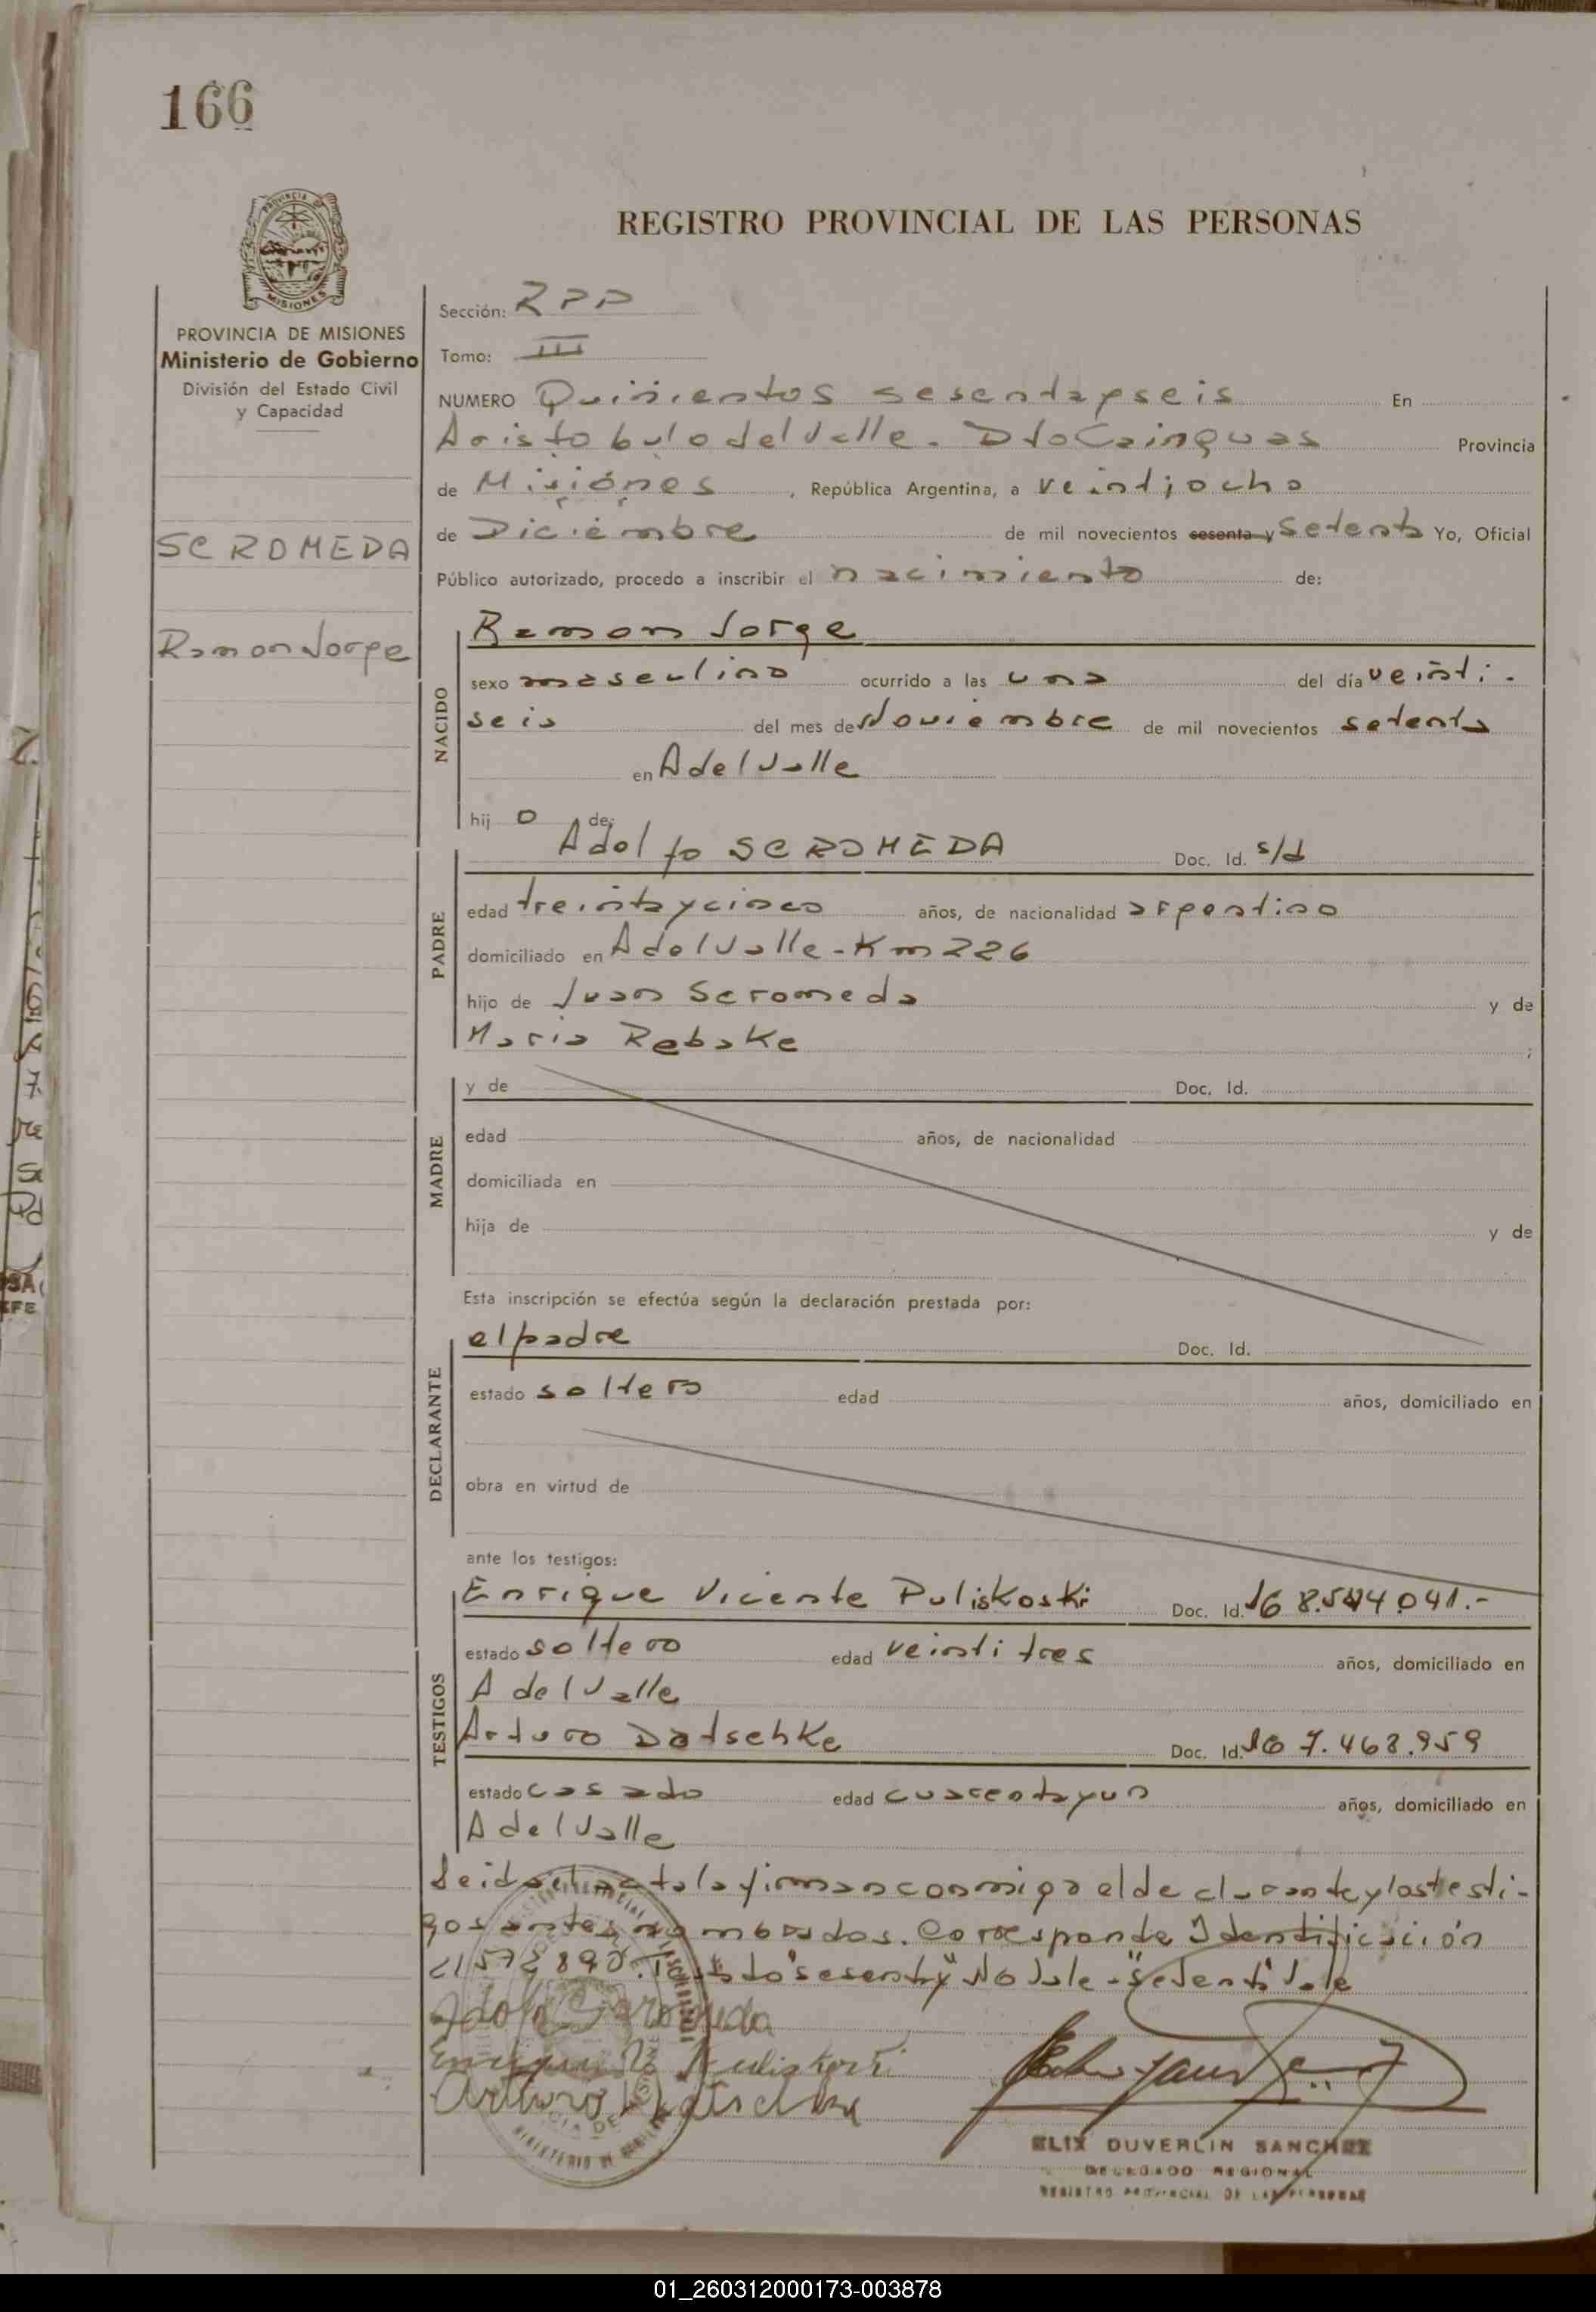 166
PROVINCIA DE MISIONES
Ministerio de Gobierno
División del Estado Civil
y Capacidad
SCROMEDA
Ramon Jorge
REGISTRO PROVINCIAL DE LAS PERSONAS
Sección: RPP
Tomo: III
NUMERO Quinientos sesentayseis En
Aristobulo del Valle. Dto Cainguas Provincia
de Misiones, República Argentina, a veintiocho
de Diciembre de mil novecientos sesenta y Setenta Yo, Oficial
Público autorizado, procedo a inscribir el nacimiento de:
NACIDO
Ramon Jorge
sexo masculino ocurrido a las una del día veinti-
seis del mes de Noviembre de mil novecientos setenta
en A del Valle
hij o de:
PADRE
Adolfo SCROMEDA Doc. Id. s/d
edad treintaycinco años, de nacionalidad argentino
domiciliado en A del Valle-Km 226
hijo de Juan Scromeda y de
Maria Rebake ;
MADRE
y de Doc. Id.
edad años, de nacionalidad
domiciliada en
hija de y de
Esta inscripción se efectúa según la declaración prestada por:
DECLARANTE
el padre Doc. Id.
estado soltero edad años, domiciliado en
obra en virtud de
ante los testigos:
TESTIGOS
Enrique Vicente Puliskoski Doc. Id. 8.544.041.-
estado soltero edad veintitres años, domiciliado en
A del Valle
Arturo Datschke Doc. Id. 7.468.959
estado casado edad cuarentayun años, domiciliado en
A del Valle
Leida el acta la firman conmigo el declarante y los testi-
gos antes nombrados. Corresponde Identificición
21572890. Testado "sesenta y" No vale - "setenta" Vale
Adolfo Scromeda
Arturo Datschke
ELIX DUVERLIN SANCHEZ
DELEGADO REGIONAL
REGISTRO PROVINCIAL DE LAS PERSONAS
01_260312000173-003878